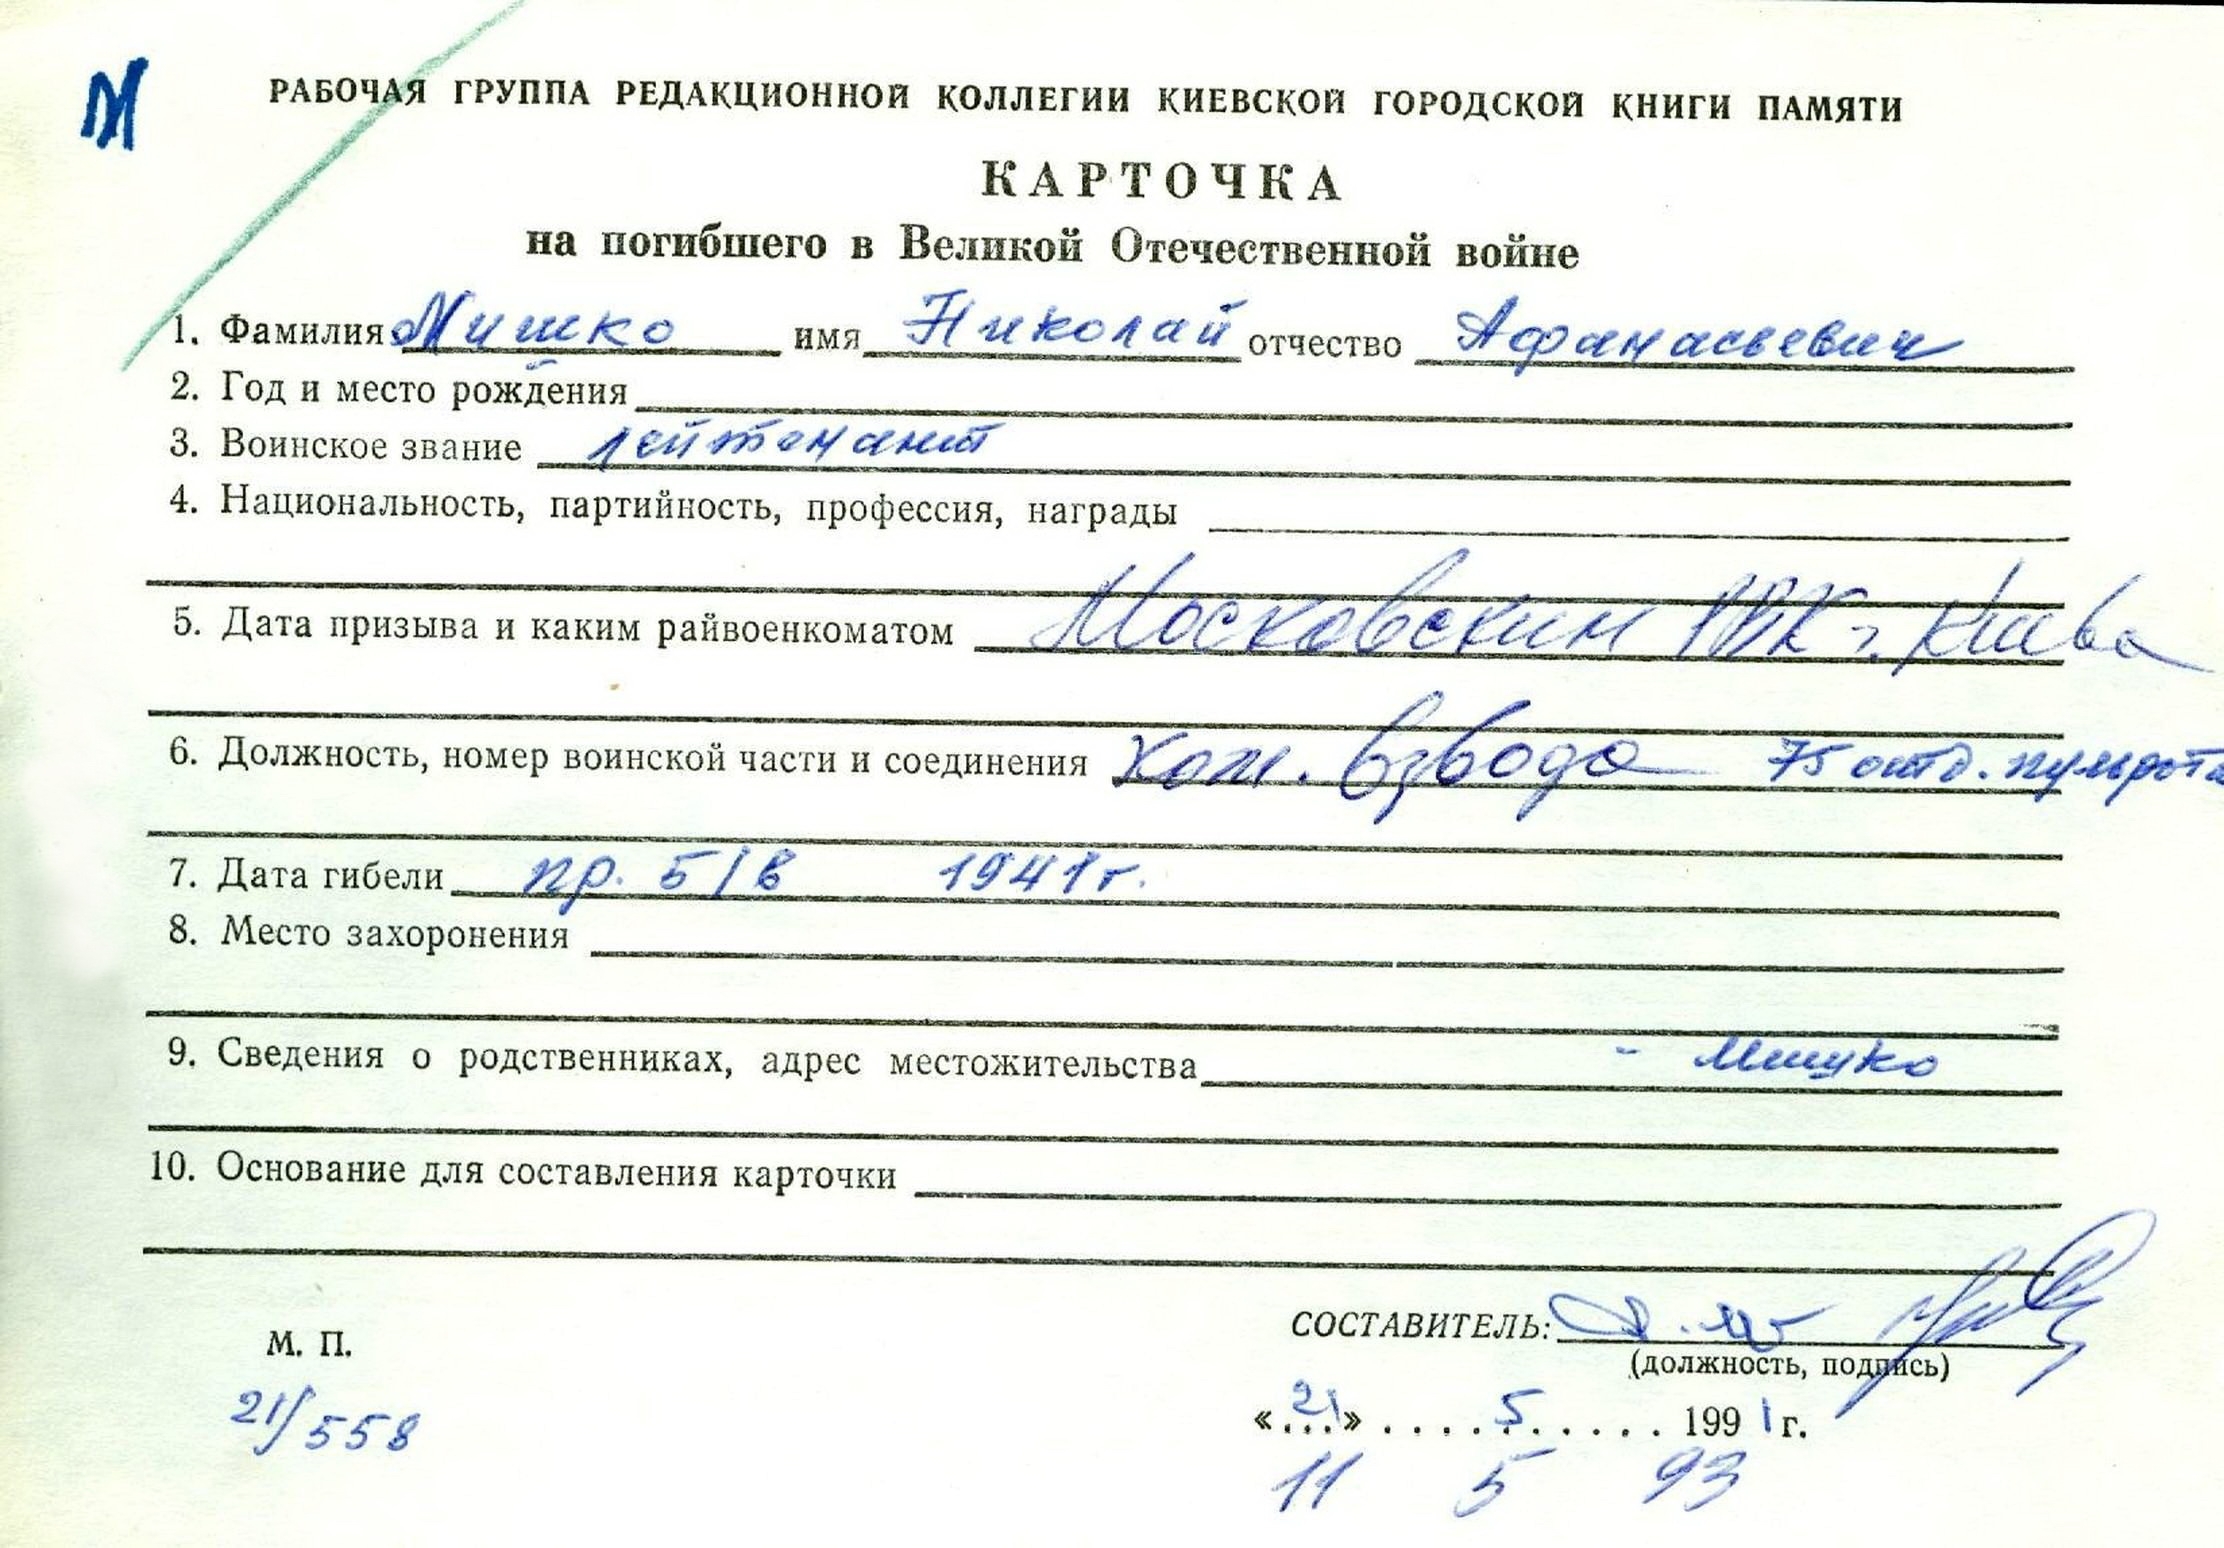 М
РАБОЧАЯ ГРУППА РЕДАКЦИОННОЙ КОЛЛЕГИИ КИЕВСКОЙ ГОРОДСКОЙ КНИГИ ПАМЯТИ
КАРТОЧКА
на погибшего в Великой Отечественной войне
1. Фамилия Мишко имя Николай отчество Афанасьевич
2. Год и место рождения
3. Воинское звание лейтенант
4. Национальность, партийность, профессия, награды
5. Дата призыва и каким райвоенкоматом Московским РВК г. Киева
6. Должность, номер воинской части и соединения Ком. взвода 75 отд. пульрота
7. Дата гибели пр. б/в 1941г.
8. Место захоронения
9. Сведения о родственниках, адрес местожительства - Мицко
10. Основание для составления карточки
СОСТАВИТЕЛЬ:
М. П. (должность, подпись)
21/558 «21» 5 1991 г.
11 5 93